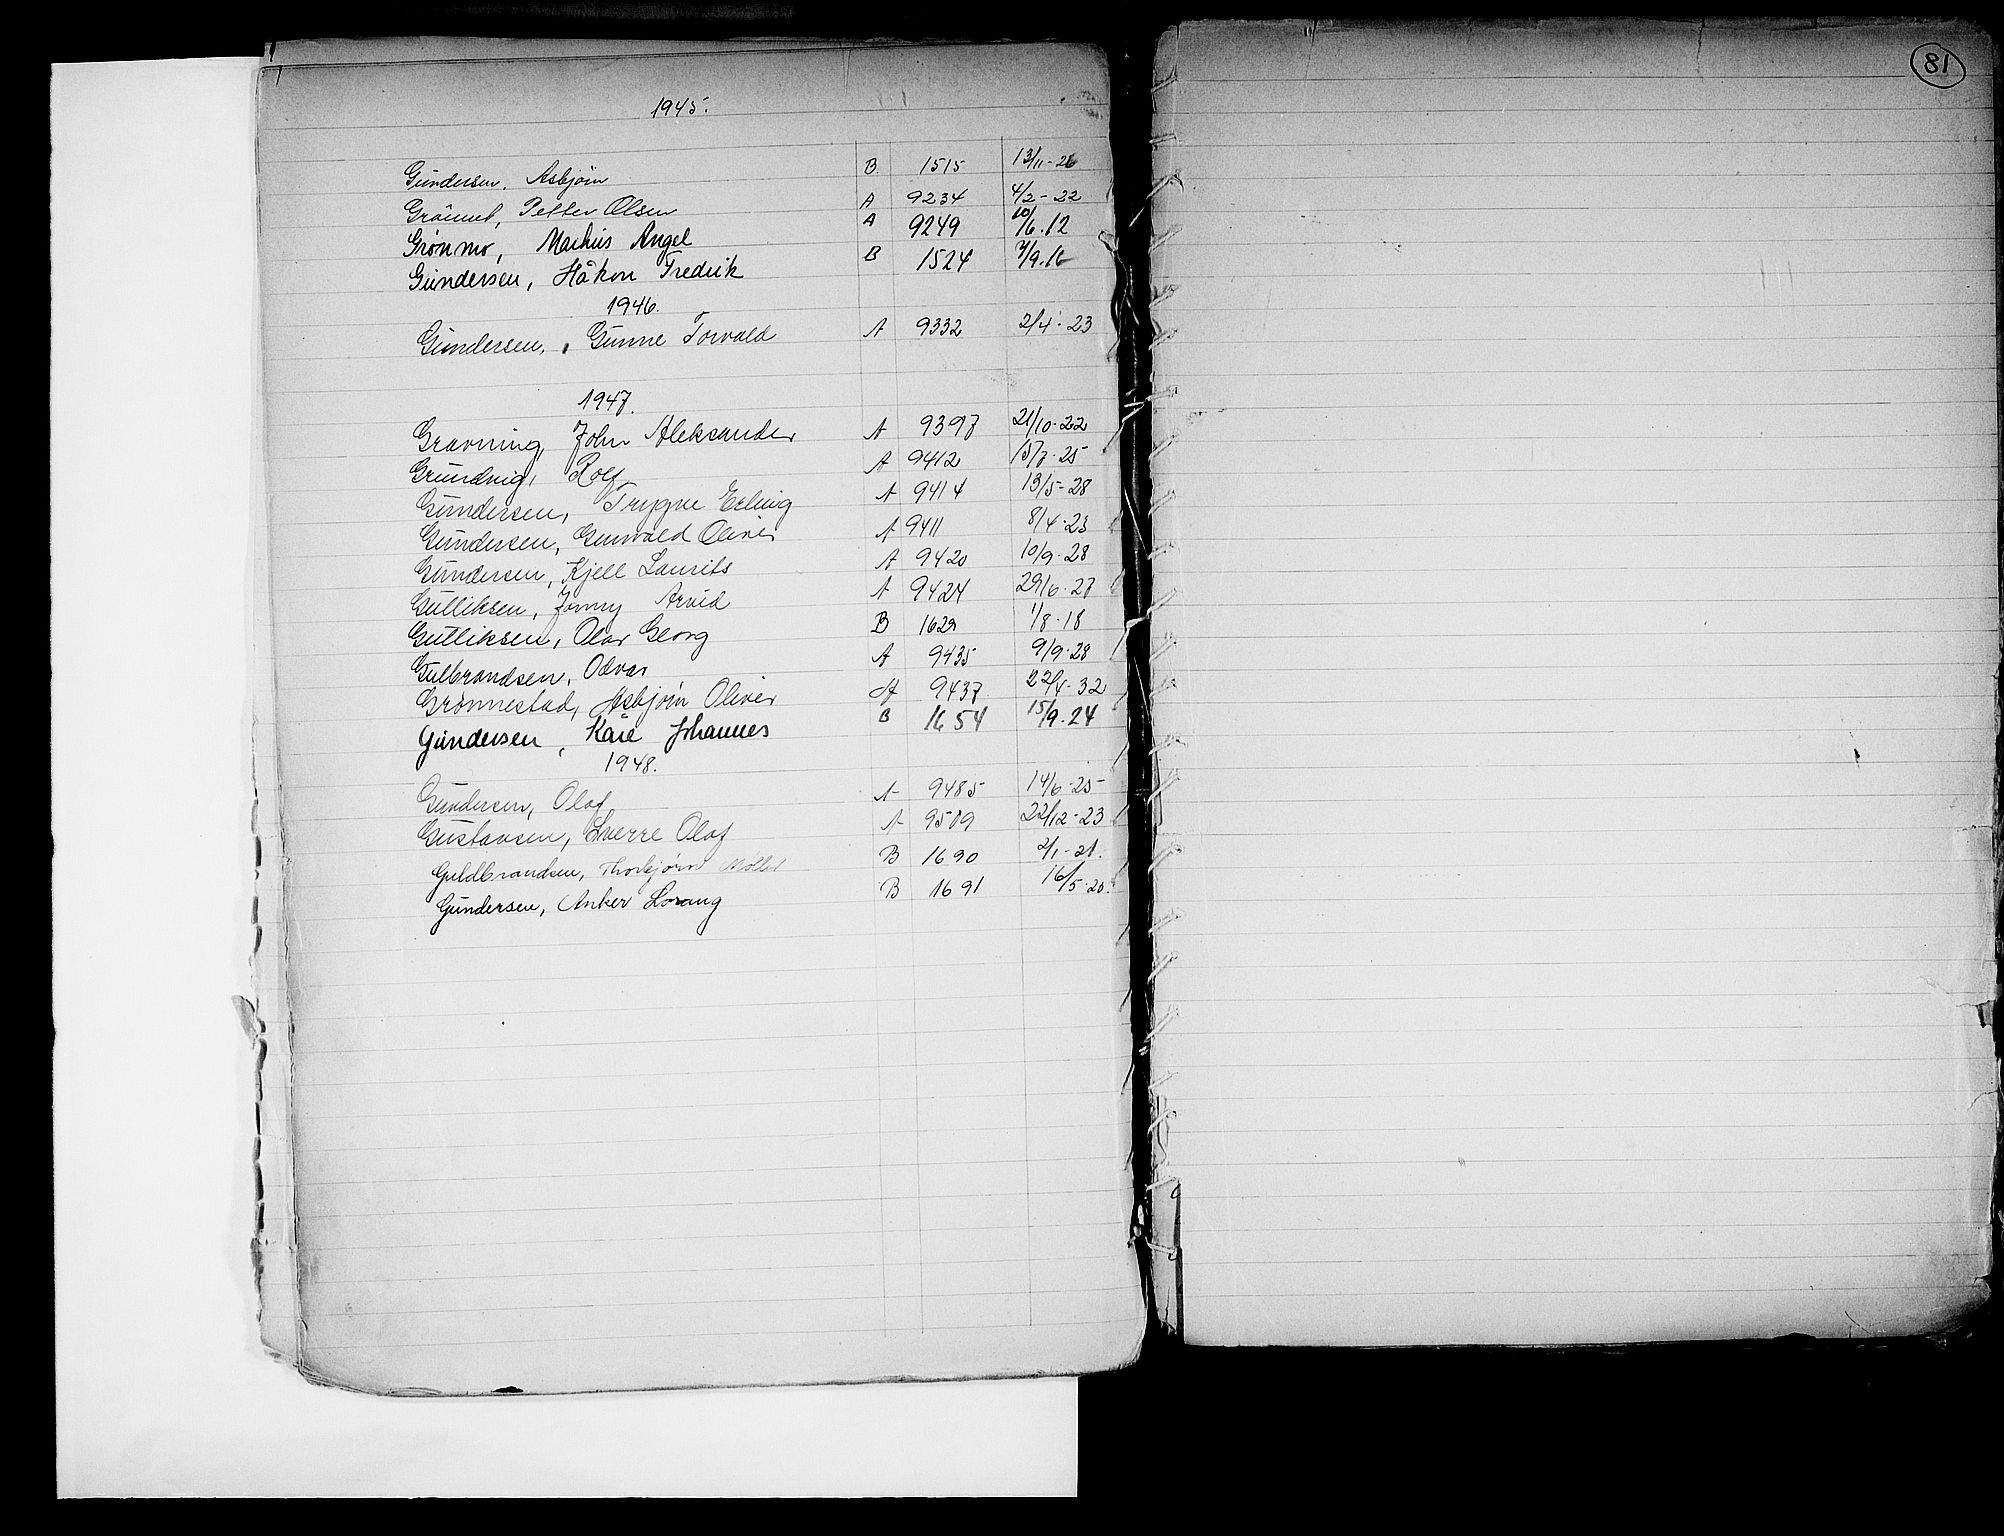 81
1945.
Gundersen, Asbjørn B. 1515 13/11-26
Petter Olsen A 9234 4/2-22
Grønmo, Markus Angel A 9249 10/6.12
Gundersen, Håkon Fredrik B 1524 /9.16
1946.
Gundersen, Gunne Torvald A 9332 2/4-23
1947.
Gravning, John Aleksander A 9397 21/10-22
Grundvig, Rolf A 9412 15/7-25
Gundersen, Trygve Erling A 9414 13/5-28
Gundersen, Gunvald Oliver A 9411 8/4-23
Gundersen, Kjell Laurits A 9420 10/9-28
Gulliksen, Jonny Arvid A 9424 29/6-27
Gulliksen, Olav Georg B 1629 1/8-18
Gulbrandsen, Odvar A 9435 9/9-28
Grønnestad, Asbjørn Oliver A 9437 22/4-32
Gundersen, Kåre Johannes B 1654 15/9-24
1948.
Gundersen, Olaf A 9485 14/6-25
Gustavsen, Sverre Olaf A 9509 22/12-23
Guldbrandsen, Thorbjørn Møller B 1690 2/1-21.
Gundersen, Anker Lorang B 1691 16/5-20.